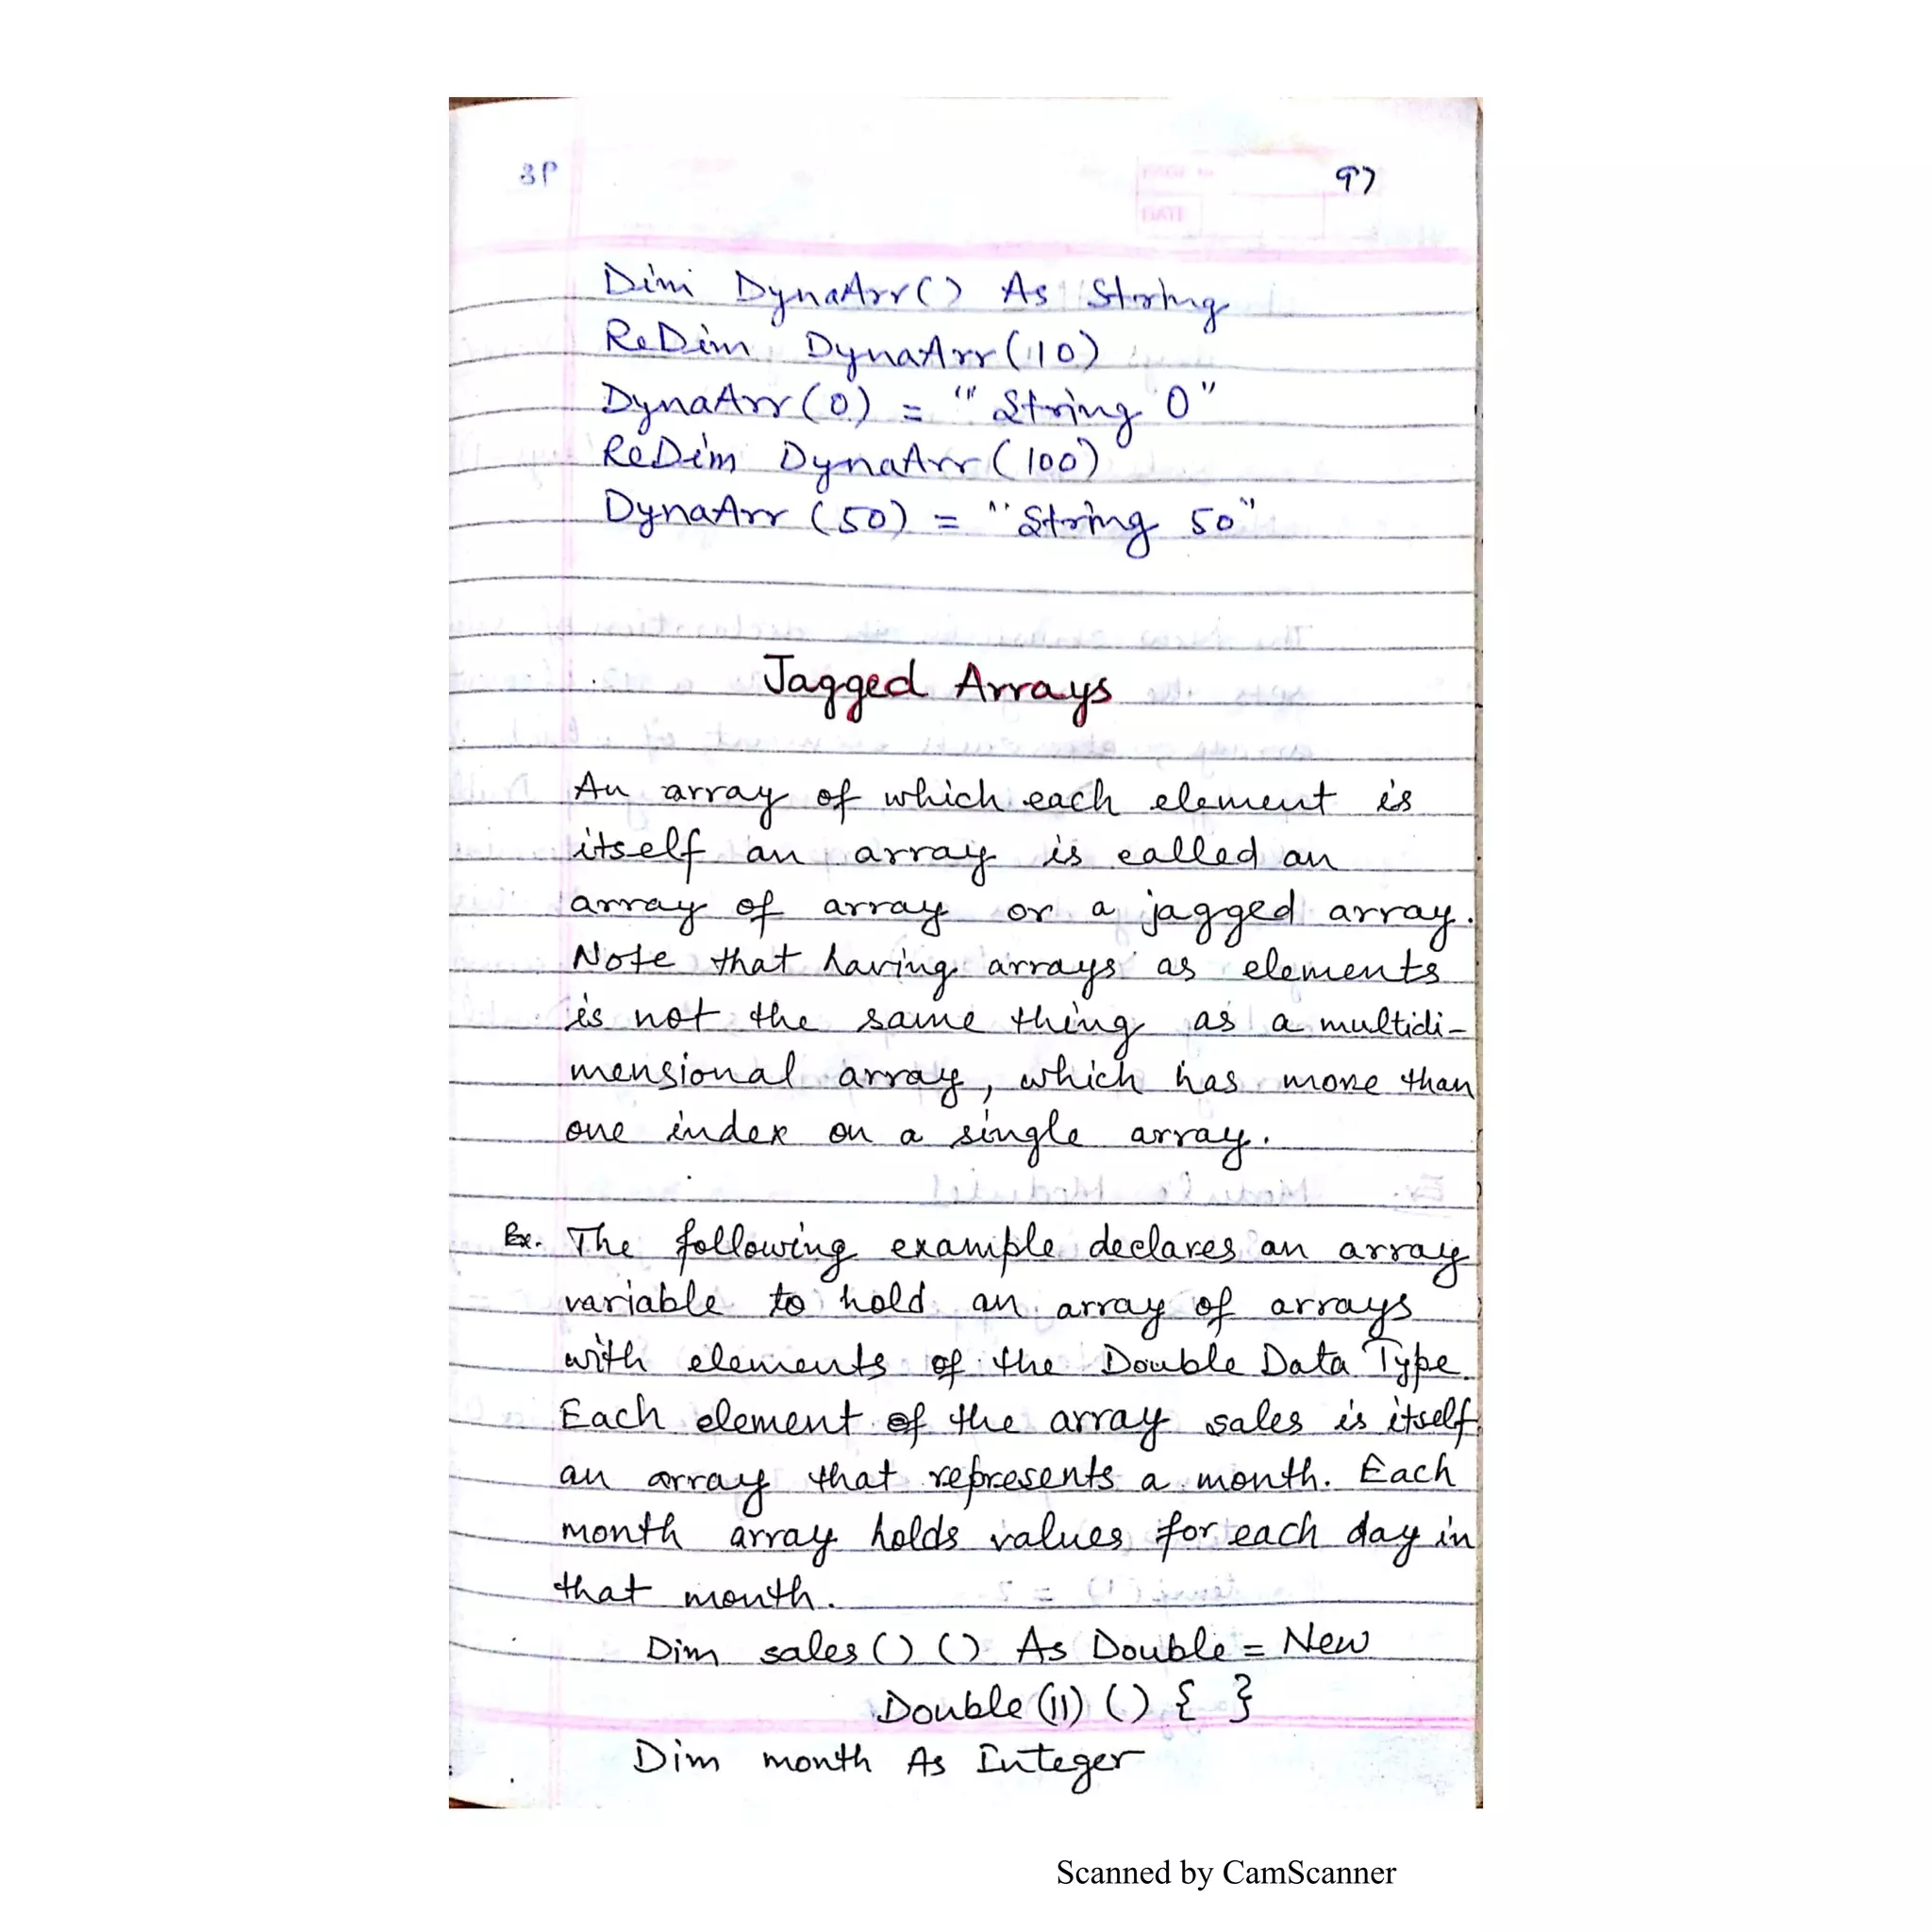 97
Dim DynaArr() As String
ReDim DynaArr(10)
DynaArr(0) = "String 0"
ReDim DynaArr(100)
DynaArr(50) = "String 50"
Jagged Arrays
An array of which each element is
itself an array is called an
array of array or a jagged array.
Note that having arrays as elements
is not the same thing as a multidi-
mensional array, which has more than
one index on a single array.
Ex. The following example declares an array
variable to hold an array of arrays
with elements of the Double Data Type.
Each element of the array sales is itself
an array that represents a month. Each
month array holds values for each day in
that month.
Dim sales() () As Double = New
Double (11) () { }
Dim month As Integer
Scanned by CamScanner